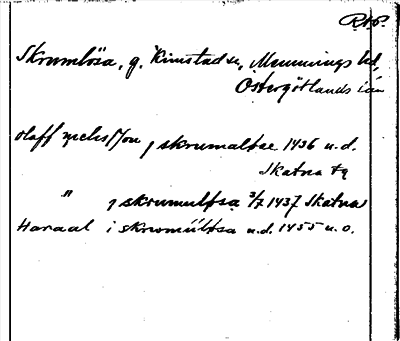 R.t.P.
Skrumlösa, g. Kimstad sn, Memmings hd,
Östergötlands län
olaff niclisson j skrumaløse 1436 u.d.
Skatna tg
" j skrumuløsa 3/7 1437 Skatna
Haraal i skrumuløsa u.d. 1455 u.o.